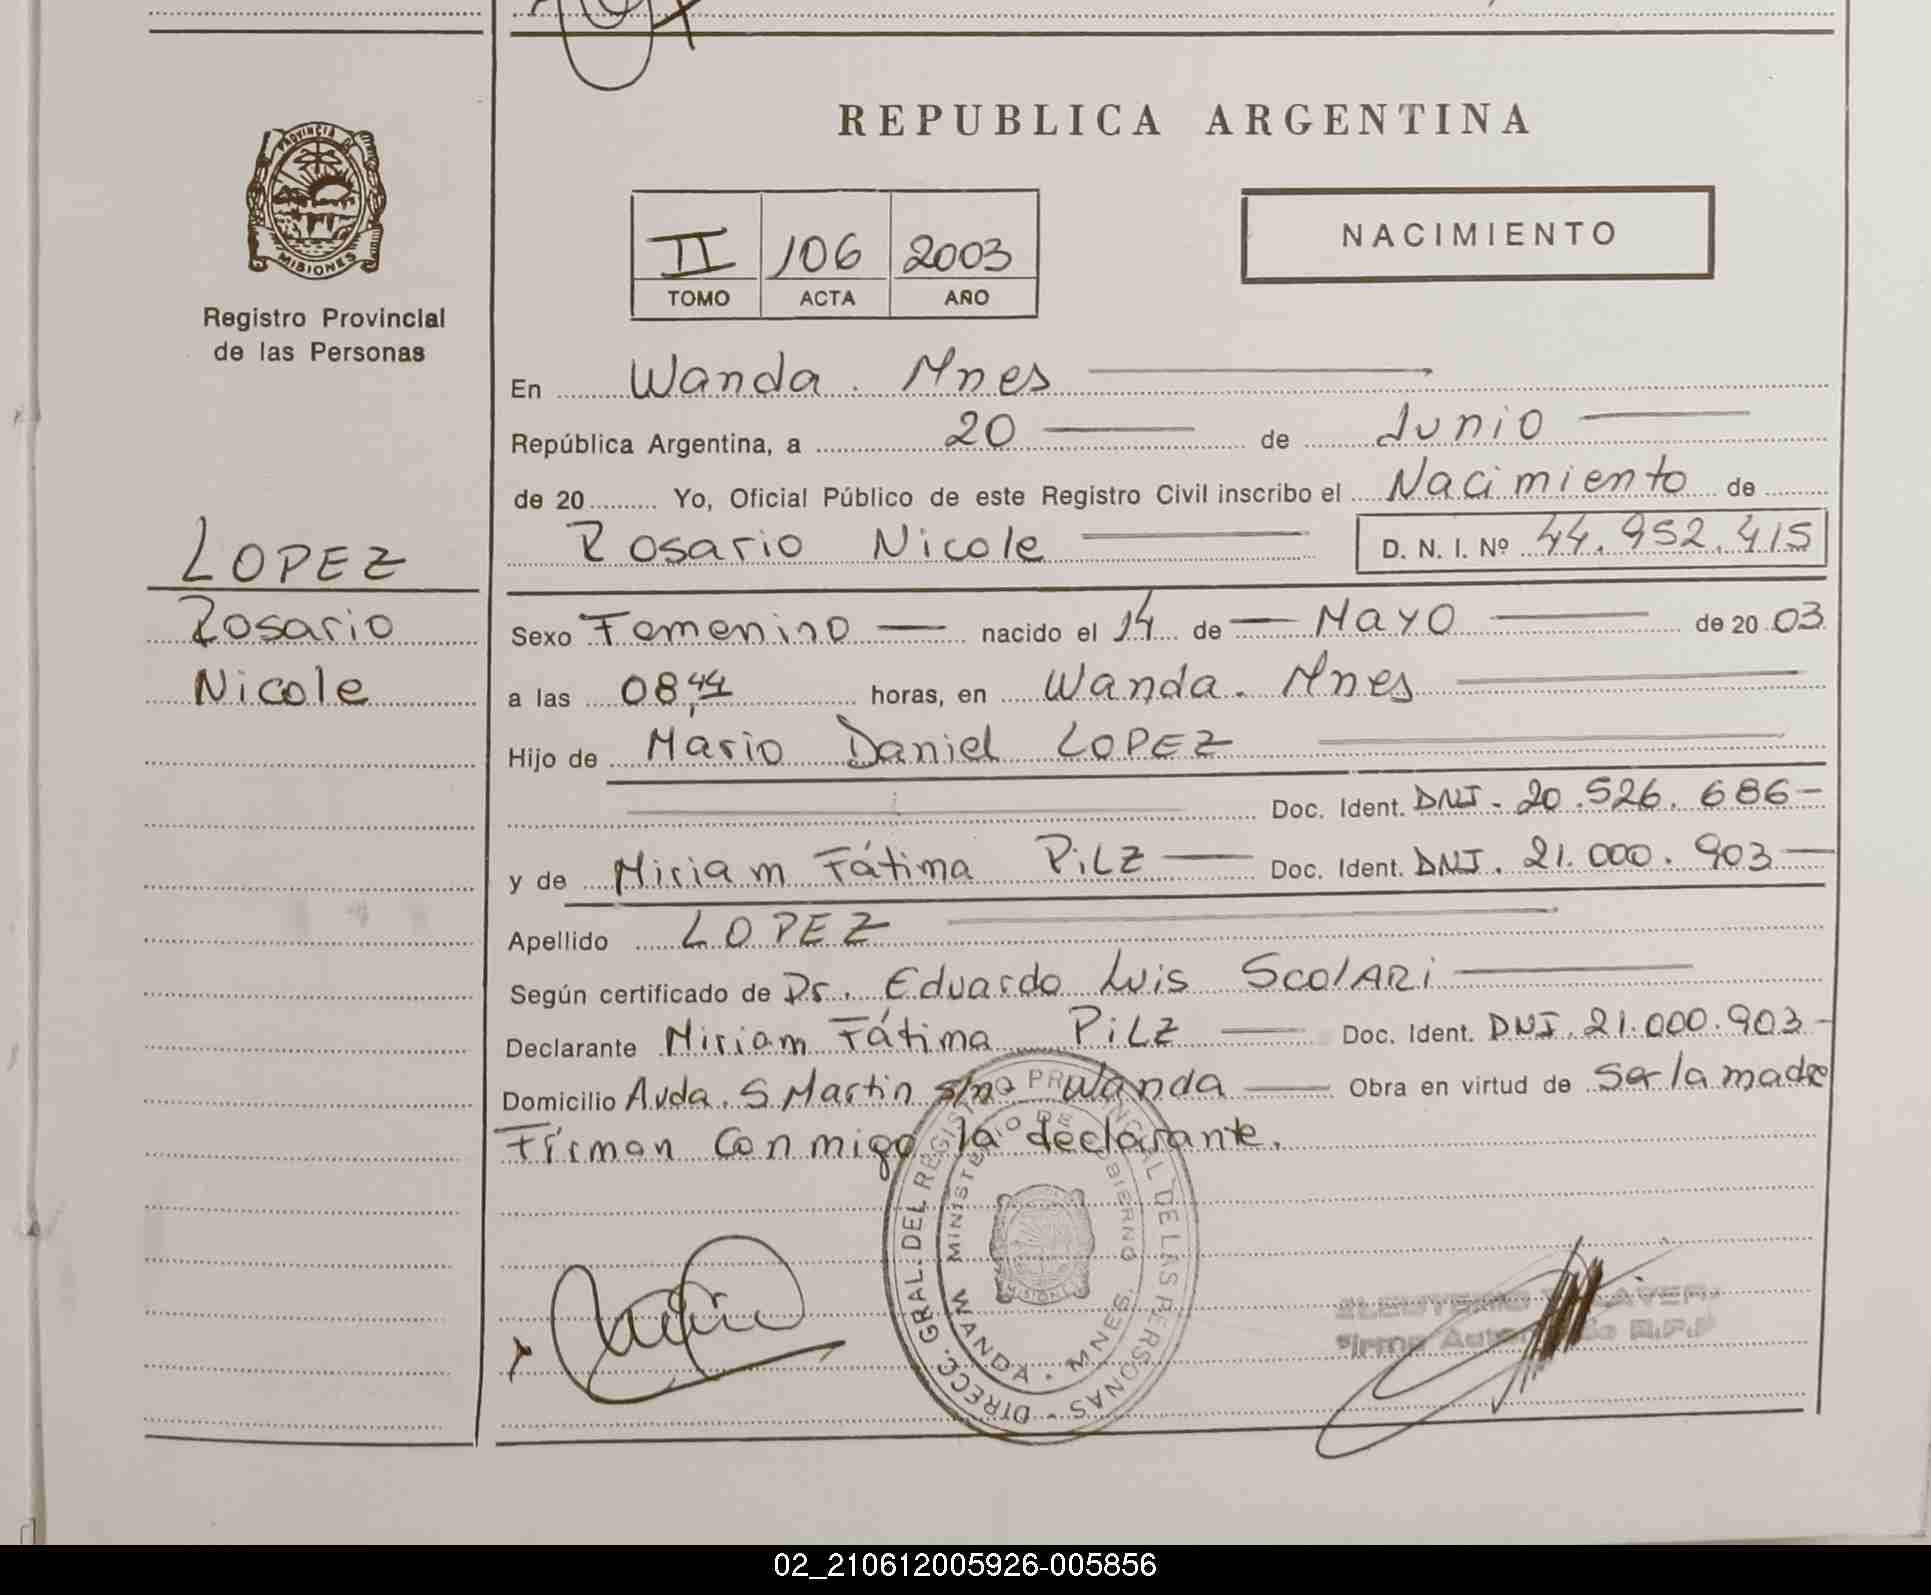 REPUBLICA ARGENTINA
PROVINCIA DE
MISIONES
Registro Provincial
de las Personas
II 106 2003
TOMO ACTA AÑO
NACIMIENTO
En Wanda. Mnes
República Argentina, a 20 de Junio
de 20 Yo, Oficial Público de este Registro Civil inscribo el Nacimiento de
Rosario Nicole D. N. I. Nº 44.952.415
LOPEZ
Rosario
Nicole
Sexo Femenino nacido el 14 de MAYO de 20 03
a las 08,44 horas, en Wanda. Mnes
Hijo de Mario Daniel LOPEZ
Doc. Ident. DNI. 20.526.686
y de Miriam Fátima PiLZ Doc. Ident. DNI. 21.000.903
Apellido LOPEZ
Según certificado de Dr. Eduardo Luis ScolARi
Declarante Miriam Fátima PiLZ Doc. Ident. DNI. 21.000.903
Domicilio Avda. S. Martin s/nº Wanda Obra en virtud de Ser la madre
Firman conmigo la declarante.
DIRECC. GRAL. DEL REGISTRO PROVINCIAL DE LAS PERSONAS
MINISTERIO DE GOBIERNO
WANDA - MNES.
MISIONES
02_210612005926-005856